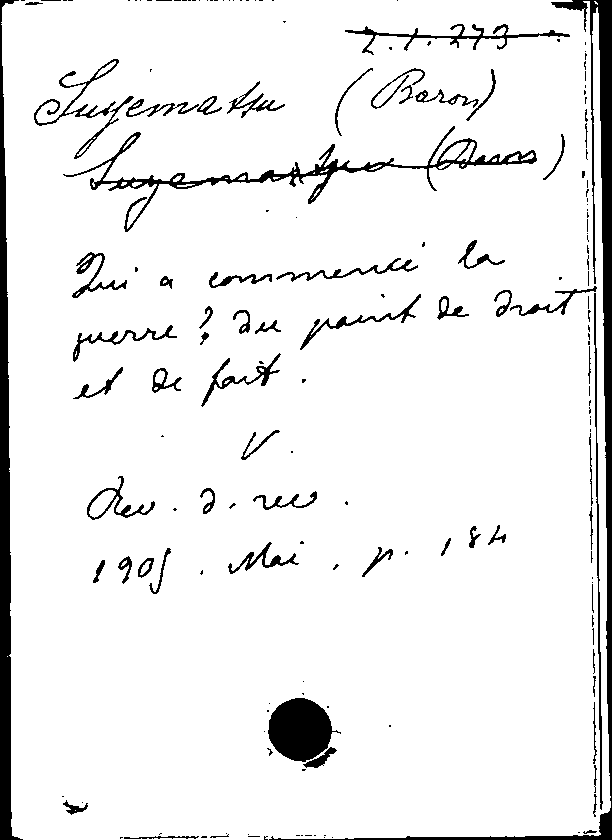 2.1.273
Suyematsu (Baron)
Suyematsu (Baron)
Qui a commencé la
guerre? Du point de droit
et de fait.
V.
Rev. d. rev.
1905. Mai. p. 184